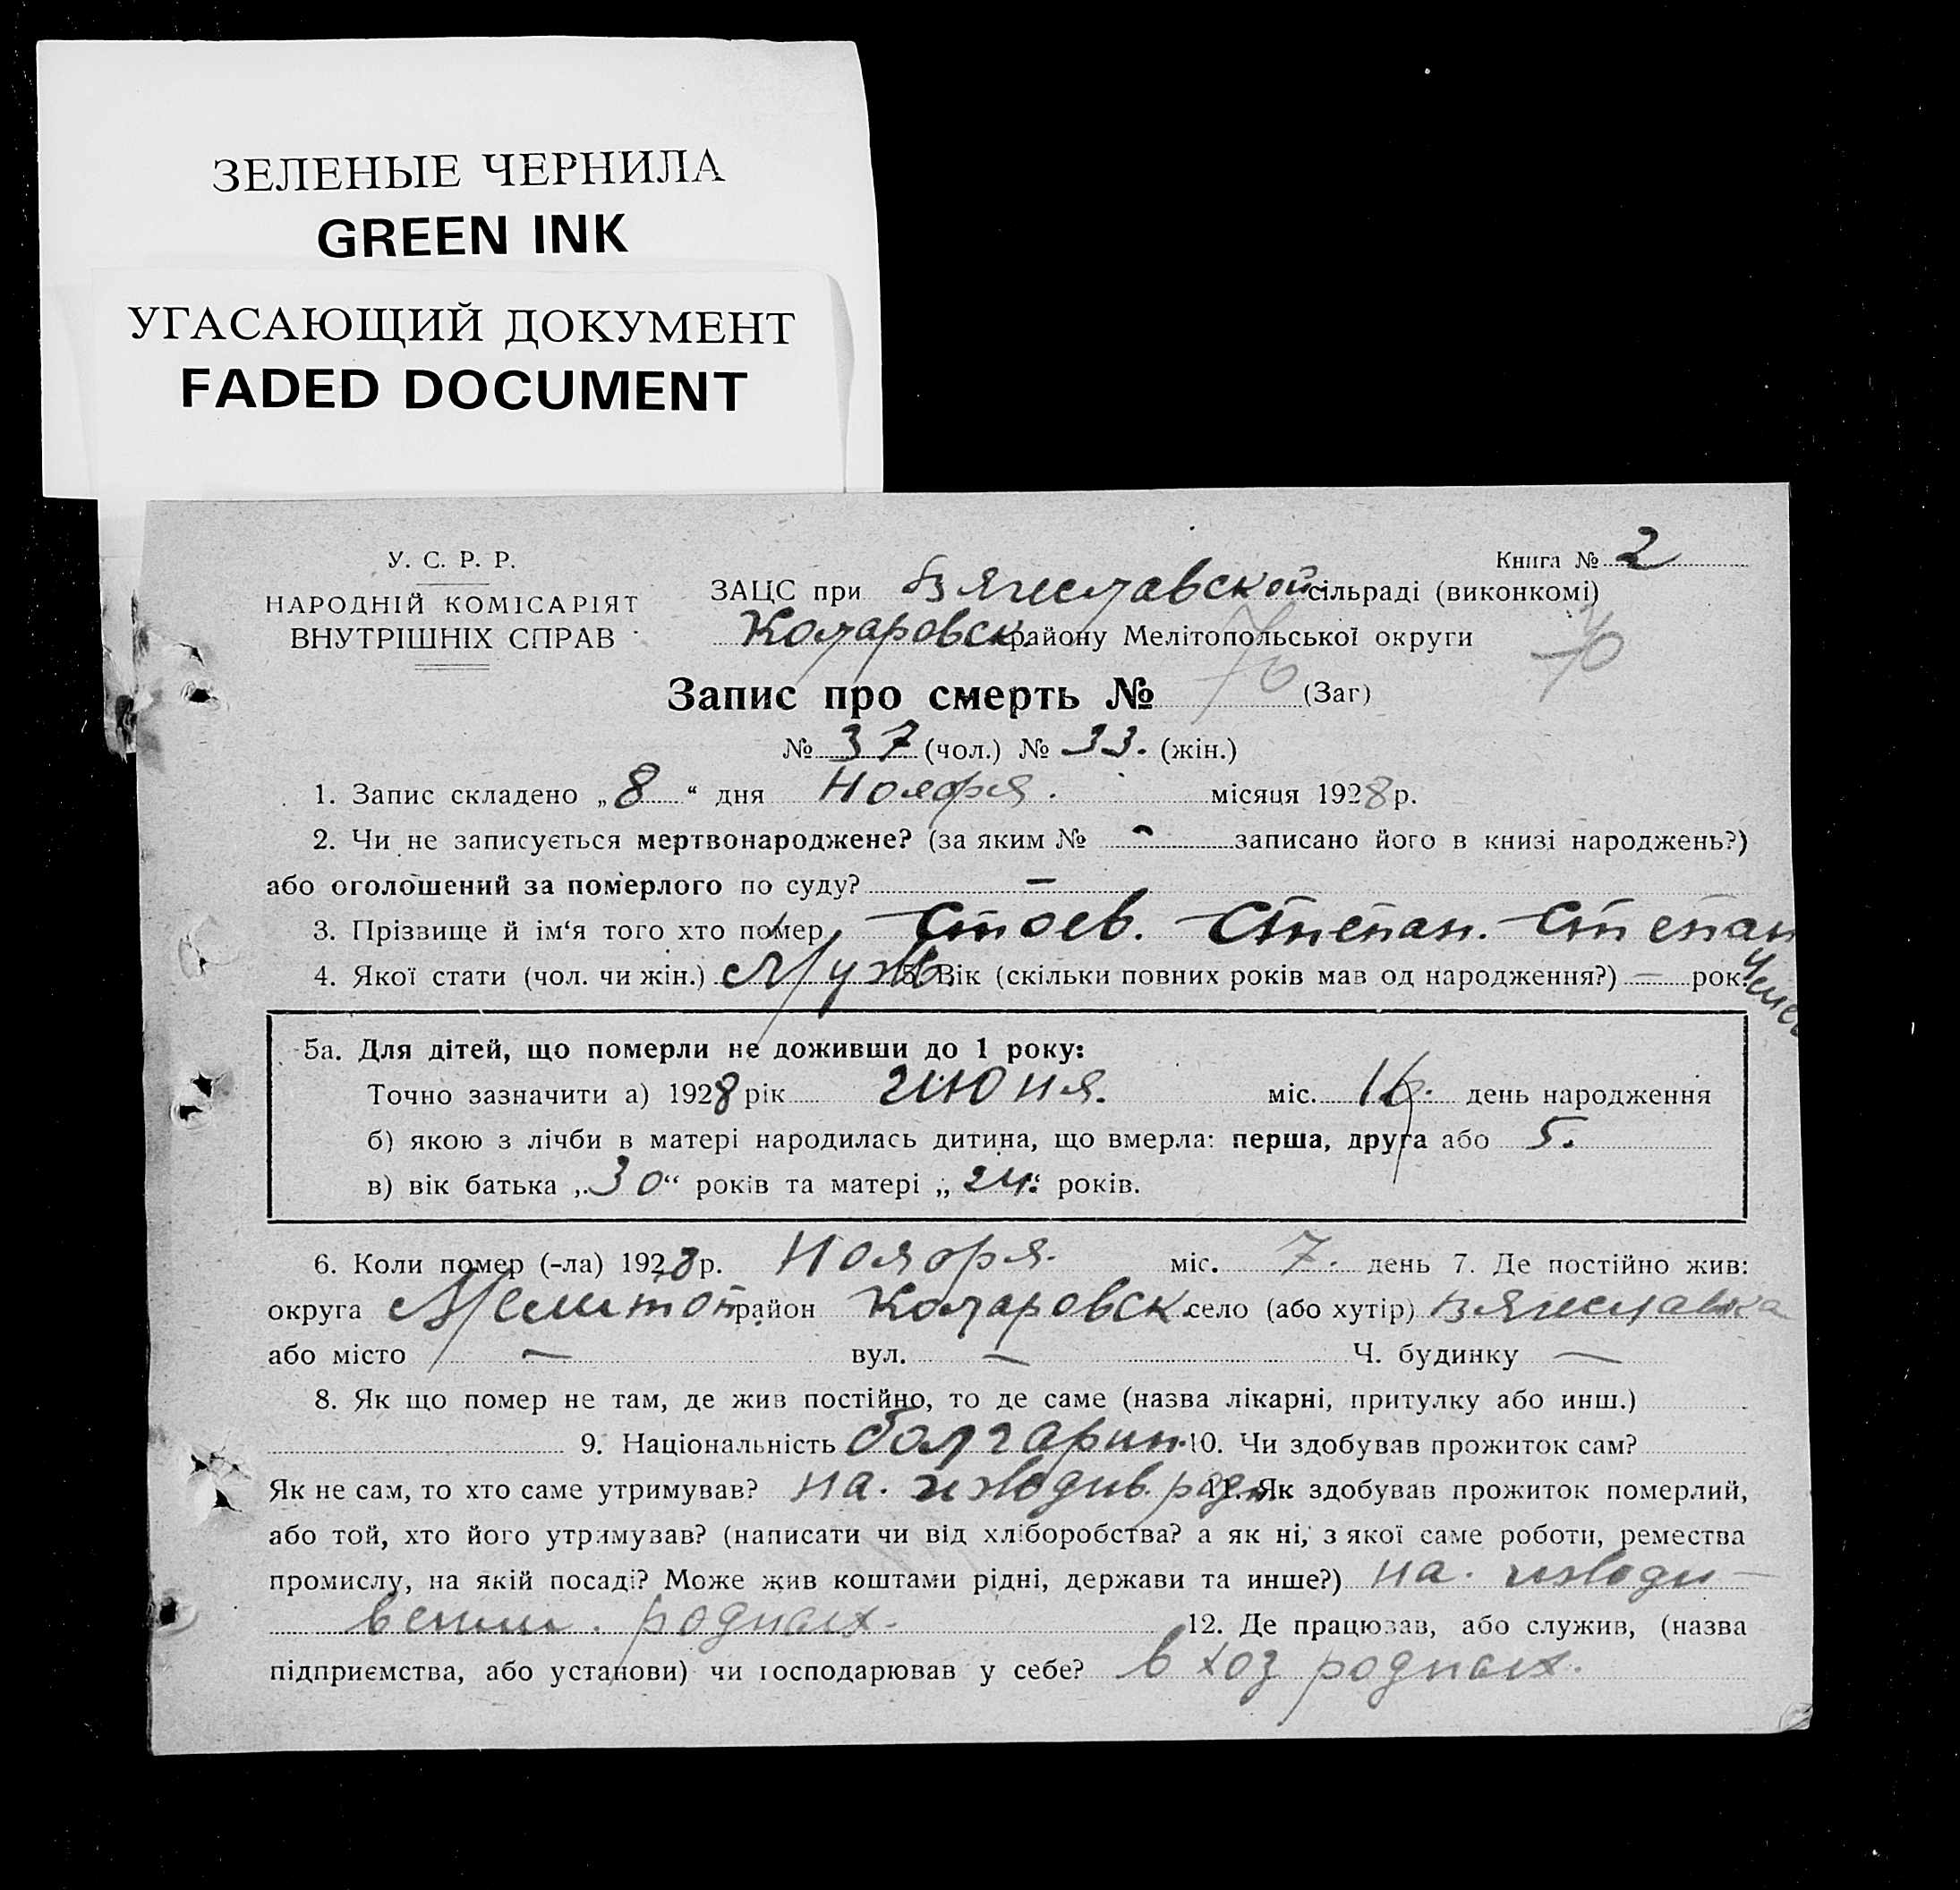 ЗЕЛЕНЫЕ ЧЕРНИЛА
GREEN INK
УГАСАЮЩИЙ ДОКУМЕНТ
FADED DOCUMENT
У. С. Р. Р.
НАРОДНІЙ КОМІСАРІЯТ
ВНУТРІШНІХ СПРАВ
Книга № 2
ЗАЦС при Вячеславской сільраді (виконкомі)
Коларовск. району Мелітопольської округи 70
Запис про смерть № 70 (Заг)
№ 37 (чол.) № 33. (жін.)
1. Запис складено „8“ дня Ноября. місяця 1928 р.
2. Чи не записується мертвонароджене? (за яким № - записано його в книзі народжень?)
або оголошений за померлого по суду? —
3. Прізвище й ім‘я того хто помер Стоев. Степан. Степан
4. Якої стати (чол. чи жін.) Муж. 5. Вік (скільки повних років мав од народження?) — рок.
5а. Для дітей, що померли не доживши до 1 року:
Точно зазначити а) 1928 рік июня. міс. 16. день народження
б) якою з лічби в матері народилась дитина, що вмерла: перша, друга або 5.
в) вік батька „30“ років та матері „24.“ років.
6. Коли помер (-ла) 1928 р. Ноября. міс. 7. день 7. Де постійно жив:
округа Мелитоп район Коларовск. село (або хутір) Вячеславка
або місто — вул. — Ч. будинку —
8. Як що помер не там, де жив постійно, то де саме (назва лікарні, притулку або инш.)
9. Національність болгарин. 10. Чи здобував прожиток сам?
Як не сам, то хто саме утримував? на. иждив. родн. 11. Як здобував прожиток померлий,
або той, хто його утримував? (написати чи від хліборобства? а як ні, з якої саме роботи, ремества
промислу, на якій посаді? Може жив коштами рідні, держави та инше?) на.
родных. 12. Де працював, або служив, (назва
підприємства, або установи) чи господарював у себе? в хоз родных.